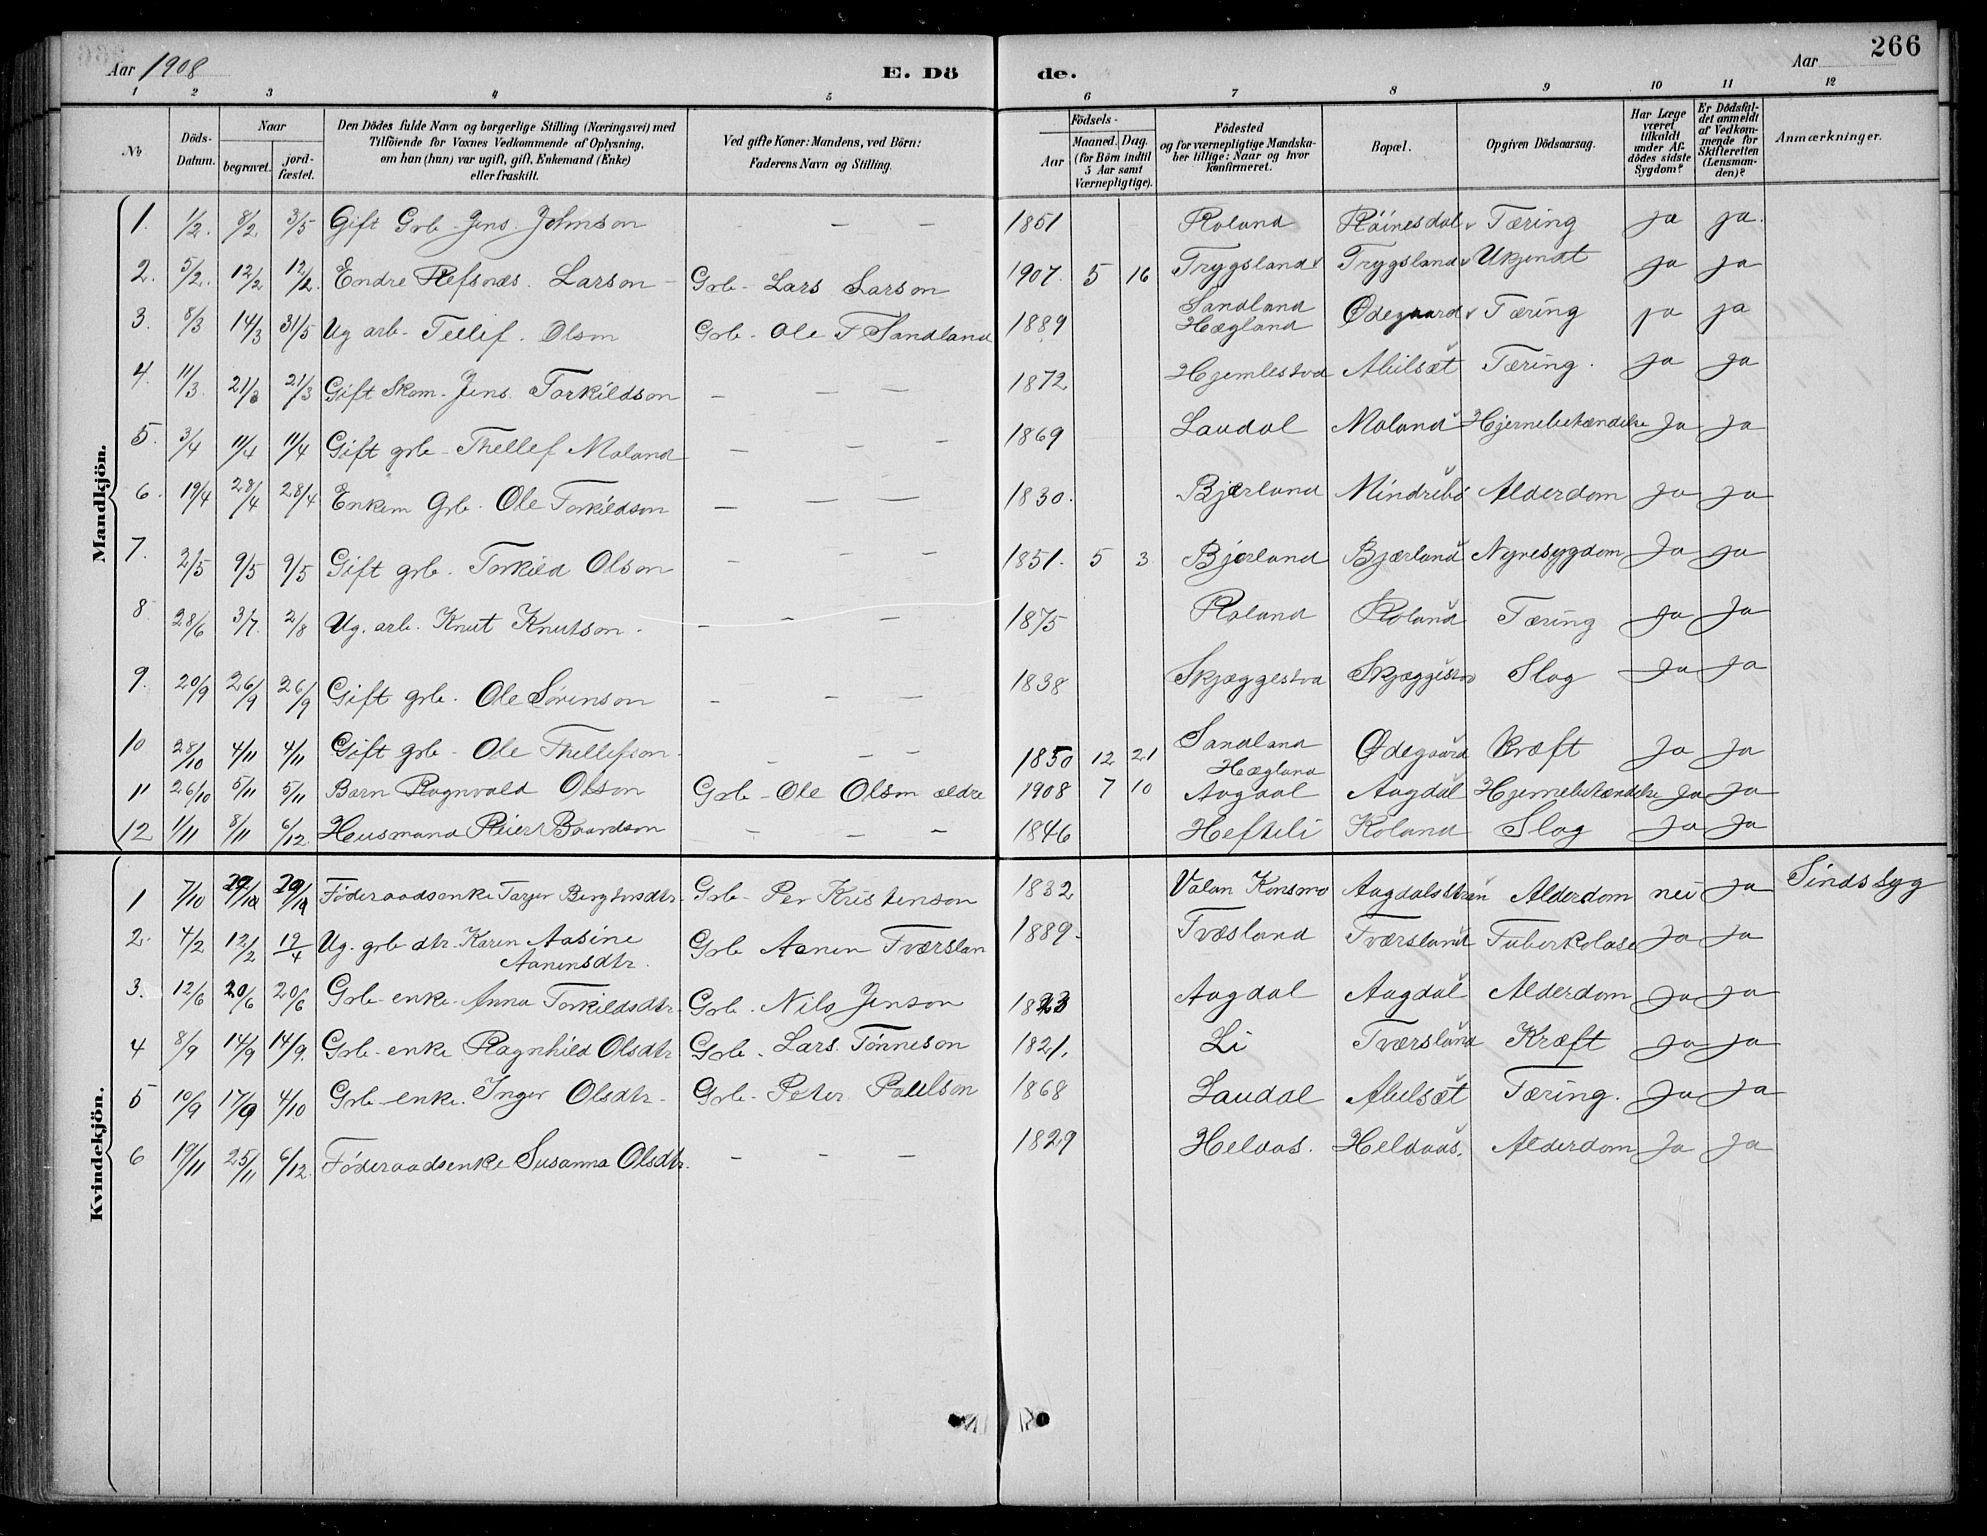 Aar 1908
E. Dö
de.
Aar
266
1 2 3 4 5 6 7 8 9 10 11 12
No
Döds-Datum.
Naar
begravet.
jord-fæstet.
Den Dödes fulde Navn og borgerlige Stilling (Næringsvei) med Tilföiende for Voxnes Vedkommende af Oplysning, om han (hun) var ugift, gift, Enkemand (Enke) eller fraskilt.
Ved gifte Koner: Mandens, ved Börn: Faderens Navn og Stilling.
Födsels-
Aar
Maaned. Dag.
(for Börn indtil 5 Aar samt Værnepligtige).
Födested og for værnepligtige Mandskaber tillige: Naar og hvor Konfirmeret.
Bopæl.
Opgiven Dödsaarsag.
Har Læge været tilkaldt under Afdödes sidste Sygdom?
Er Dödsfaldet anmeldt af Vedkommende for Skifteretten (Lensmanden)?
Anmærkninger.
Mandkjön.
1. 1/2. 8/2 3/5 Gift Grb. Jens. Johnson — — — 1851 Roland Röinesdal Tæring ja ja.
2. 5/2. 12/2 12/2. Endre Refsnæs. Larson — Grb - Lars Larson 1907. 5 16 Trygsland Trygsland Ukjendt ja ja
3. 8/3 14/3 31/5 Ug arb - Tellef. Olson Grb - Ole T Sandland 1889 Sandland Hægland Ødegaard Tæring ja ja
4. 11/3. 21/3 21/3 Gift Skom. Jens. Torkildson — — — 1872 Hjemlestvd Ahlsæt Tæring. ja ja
5. 3/4 11/4 11/4 Gift grb - Thellef Moland — — — 1869 Laudal Moland Hjernebetændelse Ja Ja
6. 19/4 28/4 28/4 Enkem Grb. Ole Torkildson — — — 1830. Bjærland Mindrebö Alderdom Ja Ja
7. 2/5 9/5 9/5 Gift grb. Torkild Olson — — — 1851. 5 3 Bjerland Bjærland Nyresygdom Ja ja
8 28/6 3/7. 2/8 Ug. arb. Knut Knutson. — — — 1875 Roland Roland Tæring Ja Ja
9. 20/9 26/9 26/9 Gift grb. Ole Sørenson — — — 1838 Skjæggestva Skjæggestvd Slag Ja Ja
10 28/10 4/11 4/11 Gift grb - Ole Thellefson. — — — 1850 12 21 Sandland Hægland Ødegaard Kræft Ja Ja
11 26/10 5/11 5/11 Barn Ragnvald Olson Grb - Ole Olson ældre 1908 7 10 Aagdal Aagdal Hjernebetændelse Ja Ja
12 1/11 8/11 6/12. Husmand Reier Baardson — — — 1846 Hefteli Roland Slag Ja Ja
Kvindekjön.
1 7/10 Föderaadsenke Tarjer Bergtorsdtr. Grb - Per Kristenson 1832 Valan Konsmo Alderdom nei Ja Sindssyg
2. 4/2 12/2 19/4 Ug. grb dtr. Karen Aasine Aanensdtr. Grb Aanen Tværslan 1889. Tvæsland Tværsland Tuberkolose Ja Ja
3. 12/6 20/6 20/6 Grb - enke - Anna Torkildsdtr. Grb. Nils Jenson 1823 Aagdal Aagdal Alderdom Ja Ja
4 8/9 14/9 14/9. Grb - enke Ragnhild Olsdtr Grb. Lars. Tönneson 1821. Li Tværsland Kræft Ja Ja
5 10/9 17/9 4/10 Grb - enke. Inger Olsdtr. Grb - Peter Paulson 1868 Laudal Ahlsæt Tæring. Ja Ja
6 19/11 25/11 6/12. Föderaadsenke Susanna Olsdtr. — — — 1829 Heldaas. Heldaas. Alderdom Ja Ja